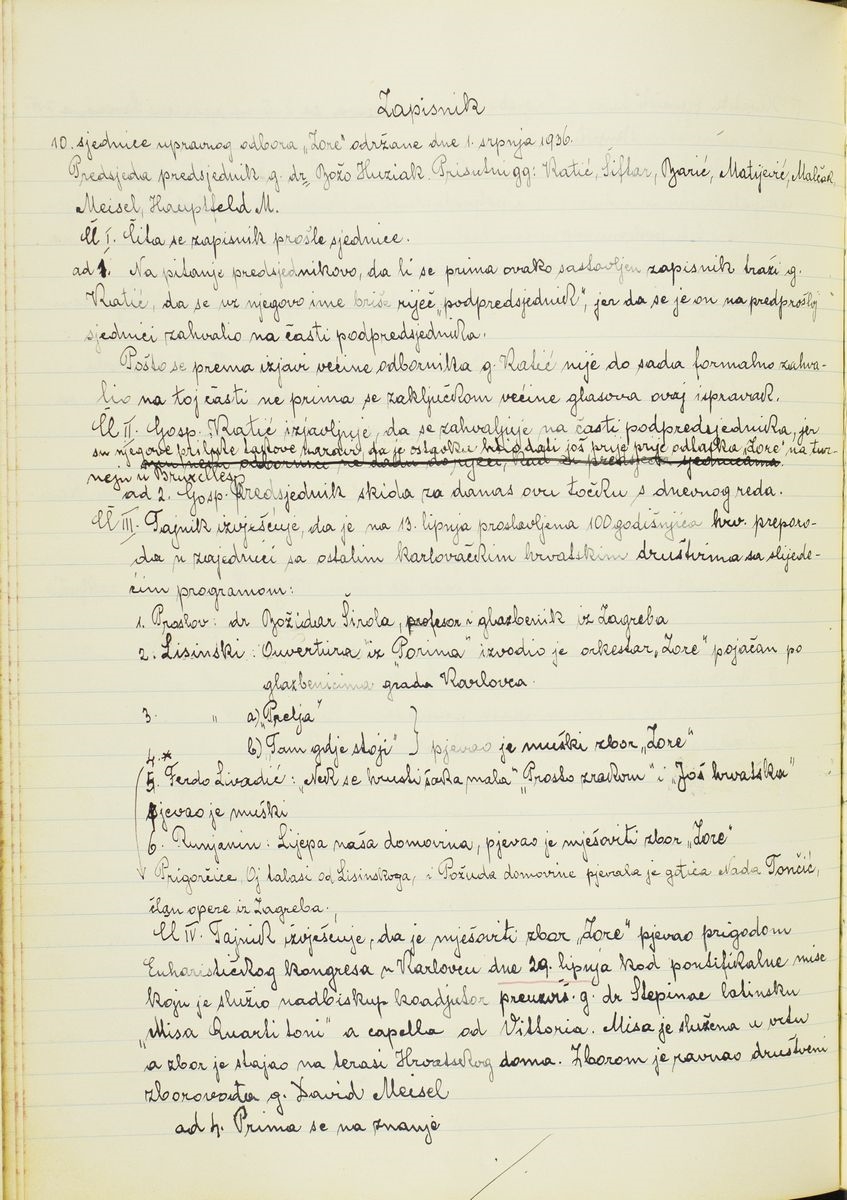 Zapisnik
10. sjednice upravnog odbora „Zore" održane dne 1. srpnja 1936.
Predsjeda predsjednik g. dr. Božo Huziak. Prisutni gg: Katić, Šiftar, Barić, Matijević, Malčak,
Meisel, Hauptfeld M.
Čl I. Čita se zapisnik prošle sjednice.
ad 1. Na pitanje predsjednikovo, da li se prima ovako sastavljen zapisnik traži g.
Katić, da se uz njegovo ime briše riječ „podpredsjednik", jer da se je on na predprošloj
sjednici zahvalio na časti podpredsjednika.
Pošto se prema izjavi većine odbornika g. Katić nije do sada formalno zahva-
lio na toj časti ne prima se zaključkom većine glasova ovaj ispravak.
Čl II. Gosp. Katić izjavljuje, da se zahvaljuje na časti podpredsjednika, jer
su njegove prilike takove naravi da je ostavku htio dati još prije prije odlaska „Zore" na tur-
neju u Bruxelles.
ad 2. Gosp. Predsjednik skida za danas ovu točku s dnevnog reda.
Čl III. Tajnik izvješćuje, da je na 13. lipnja proslavljena 100 godišnjica hrv. preporo-
da u zajednici sa ostalim karlovačkim hrvatskim društvima sa slijede-
ćim programom:
1. Proslov: dr Božidar Širola, profesor i glazbenik iz Zagreba
2. Lisinski: Ouvertura iz „Porina" izvodio je orkestar „Zore" pojačan po
glazbenicima grada Karlovca.
3. " a) „Prelja"
b) „Tam gdje stoji" } pjevao je muški zbor „Zore"
4.*
5. Ferdo Livadić: „Nek se hrusti šaka mala" „Prosto zrakom" i „Još hrvatska"
pjevao je muški
6. Runjanin: Lijepa naša domovina, pjevao je mješoviti zbor „Zore"
Prigorčice, Oj talasi od Lisinskoga, i Požuda domovine pjevala je gđica Nada Tončić,
član opere iz Zagreba.
Čl IV. Tajnik izvješćuje, da je mješoviti zbor „Zore" pjevao prigodom
Euharističkog kongresa u Karlovcu dne 29. lipnja kod pontifikalne mise
koju je služio nadbiskup koadjutor preuzviš. g. dr Stepinac latinsku
„Misa Quarti toni" a capella od Vittoria. Misa je služena u vrtu
a zbor je stajao na terasi Hrvatskog doma. Zborom je ravnao društveni
zborovođa g. David Meisel
ad 4. Prima se na znanje